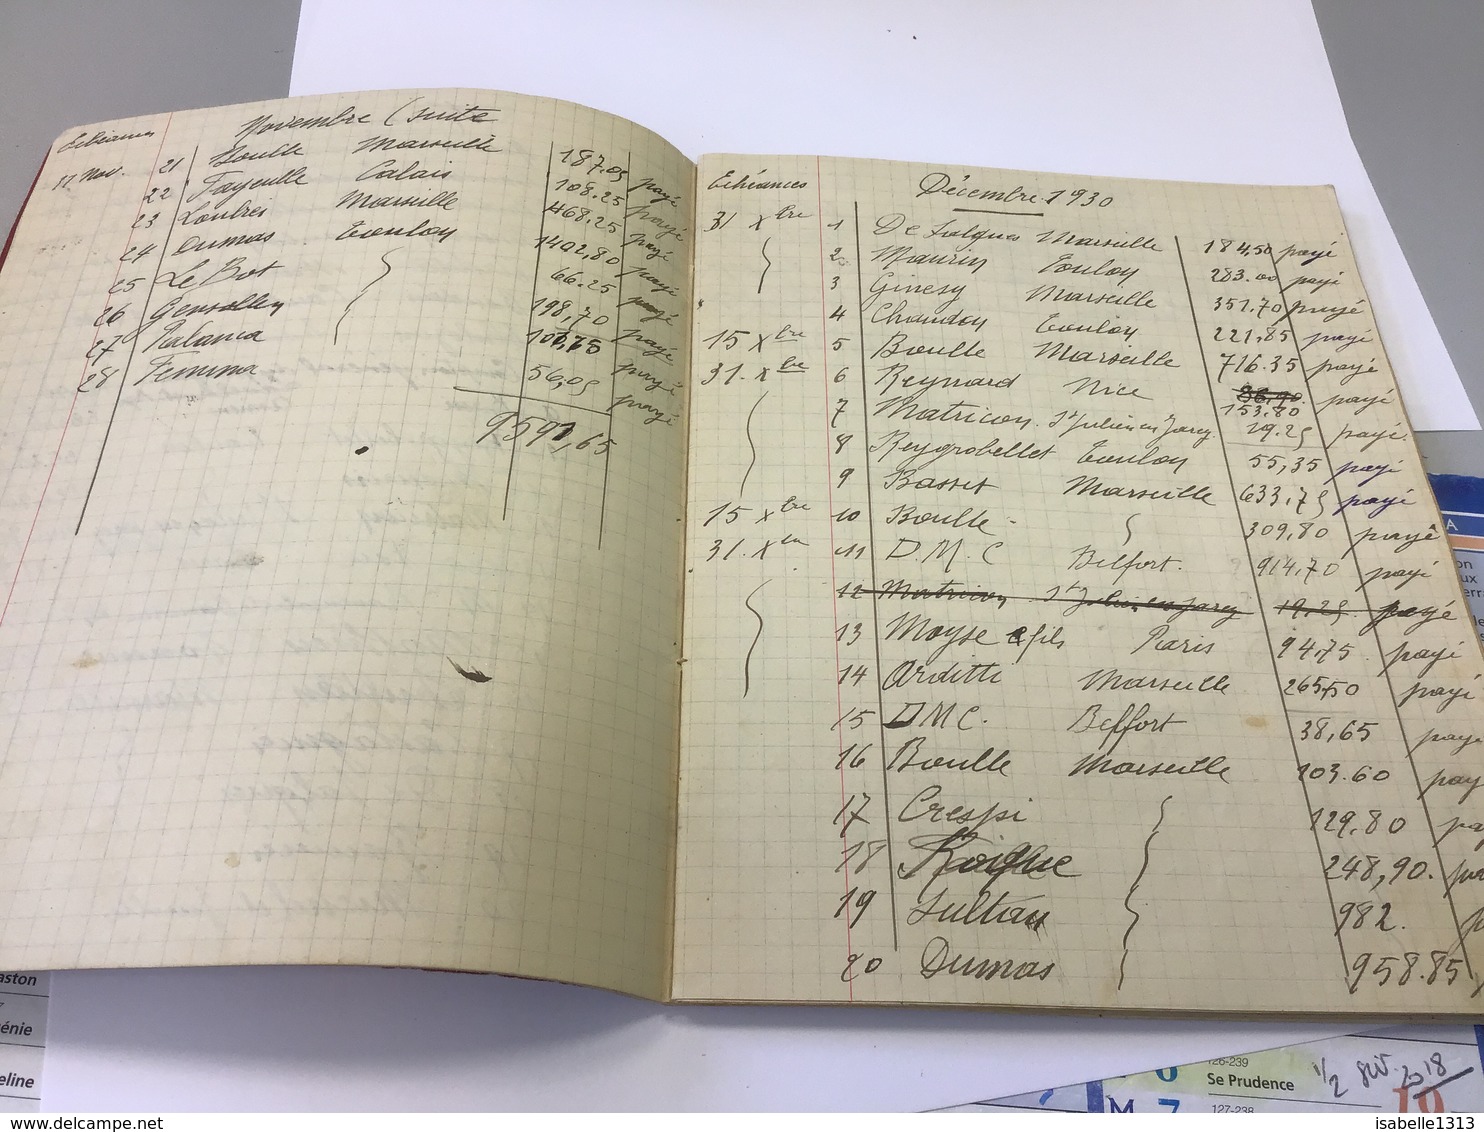 Echéances
Novembre (suite
17 Nov. 21 Boulle Marseille 187.05 payé
22 Fayeulle Calais 108.25 payé
23 Loubres Marseille 468.25 payé
24 Dumas Toulon 1402,80 payé
25 Le Bot 66.25 payé
26 Gensollen 198,70 payé
27 Palanca 107,75 payé
28 Femma 56,05 payé
9597,65
Echéances
Décembre 1930
31 Xbre 1 De Salques Marseille 184,50 payé
2 Maurin Toulon 283.00 payé
3 Ginesy Marseille 351.70 payé
4 Chaudon Toulon 221,85 payé
15 Xbre 5 Boulle Marseille 716.35 payé
31. Xbre 6 Reynard Nice 86,90. payé
153.80
7 Matricon. St Julien en Jarez 19.25 payé.
8 Reygrobellet Toulon 55,35 payé
9 Basset Marseille 633.75 payé
15 Xbre 10 Boulle 309,80 payé
31. Xbre 11 D.M.C Belfort. 914,70 payé
12 Matricon St Julien en Jarez 19.25. payé
13 Moyse & fils Paris 94,75. payé
14 Arditti Marseille 265,50 payé
15 DMC. Belfort 38,65 paye
16 Boulle Marseille 103.60 pay
17 Crespi 129.80 pa
18 248,90. pa
19 Sultan 982. p
20 Dumas 958.85
A
aston
énie
eline
126-239
6 Se Prudence
M 7 127-238
1/2 2018
19
isabelle1313